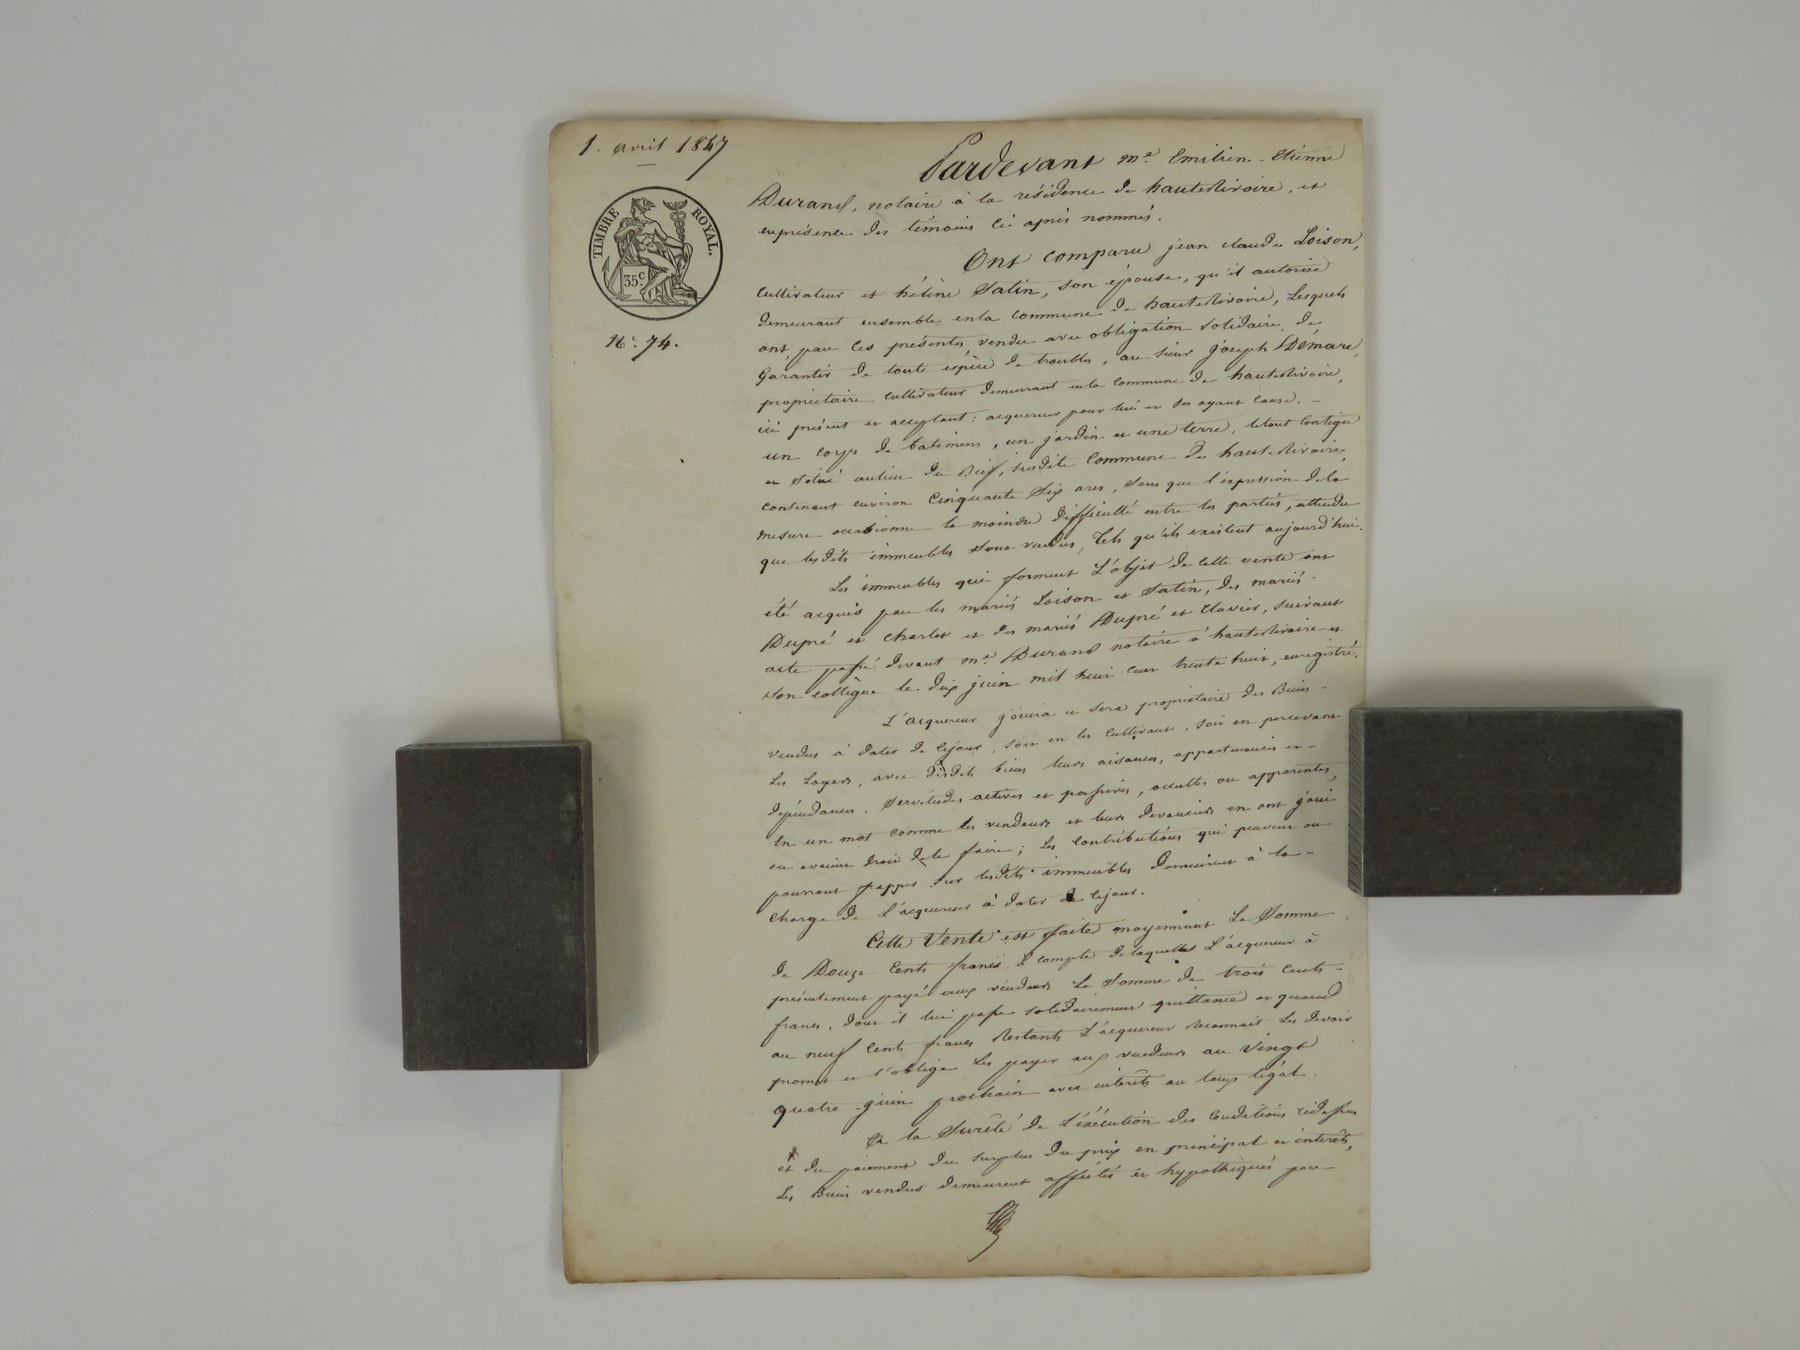 1. avril 1847
TIMBRE ROYAL.
35c.
No. 74.
Pardevant me. Emilien-Etienne
Durand, notaire à la résidence de hauterivoire, et
enprésence des témoins ci après nommés.
Ont comparu jean claude Loison,
cultivateur et hélène Satin, son épouse, qu'il autorise
demeurant ensemble enla commune de hauterivoire, Lesquels
ont par ces présentes vendu avec obligation solidaire de
garantir de toute espèce de troubles, au sieur joseph Démare,
propriétaire cultivateur demeurant enla commune de hauterivoire,
ici présent et acceptant: acquereur pour lui et ses ayant cause. —
un corps de batimens, un jardin et une terre, letout contigu
et situé aulieu du, susdite commune de hauterivoire,
contenant environ Cinquante Six ares, sans que l'expression dela
mesure occasionne la moindre difficulté entre les parties, attendu
que lesdits immeubles sont vendus, Tels qu'ils existent aujourd'hui.
Les immeubles qui forment L'objet de cette vente ont
été acquis par les mariés Loison et Satin, des mariés
Dupré et Charlet et des mariés Dupré et Clavier, suivant
acte passé devant me. Durand notaire à hauterivoire et
son collègue le dix juin mil huit cent trente huit, enregistré.
L'acquereur jouira et sera propriétaire des Biens
vendus à dater de cejour, soit en les cultivant, soit en percevant
Les Loyers, avec desdits biens leurs aisances, appartenances et
dépendances, servitudes actives et passives, occultes ou apparentes,
En un mot comme les vendeurs et leurs devanciers en ont joui
ou avaient droit dele faire; Les contributions qui peuvent ou
pourront frapper sur lesdits immeubles demeurent à la
charge de L'acquereur à dater de cejour.
Cette Vente est faite moyennant La Somme
de Douze Cents francs à compte delaquelle L'acquereur à
présentement payé aux vendeurs La Somme de trois Cents
francs, dont il lui passe solidairement quittance et quand
au neuf Cents francs Restants L'acquereur Reconnait Les devoir
promet et s'oblige Les payer aux vendeurs au Vingt
quatre juin prochain avec interêts au taux légal.
à la Sureté de L'éxécution des conditions cidessus
et du paiement du surplus du prix en principal et interêts,
Les Biens vendus demeurent affectés et hypothéqués par